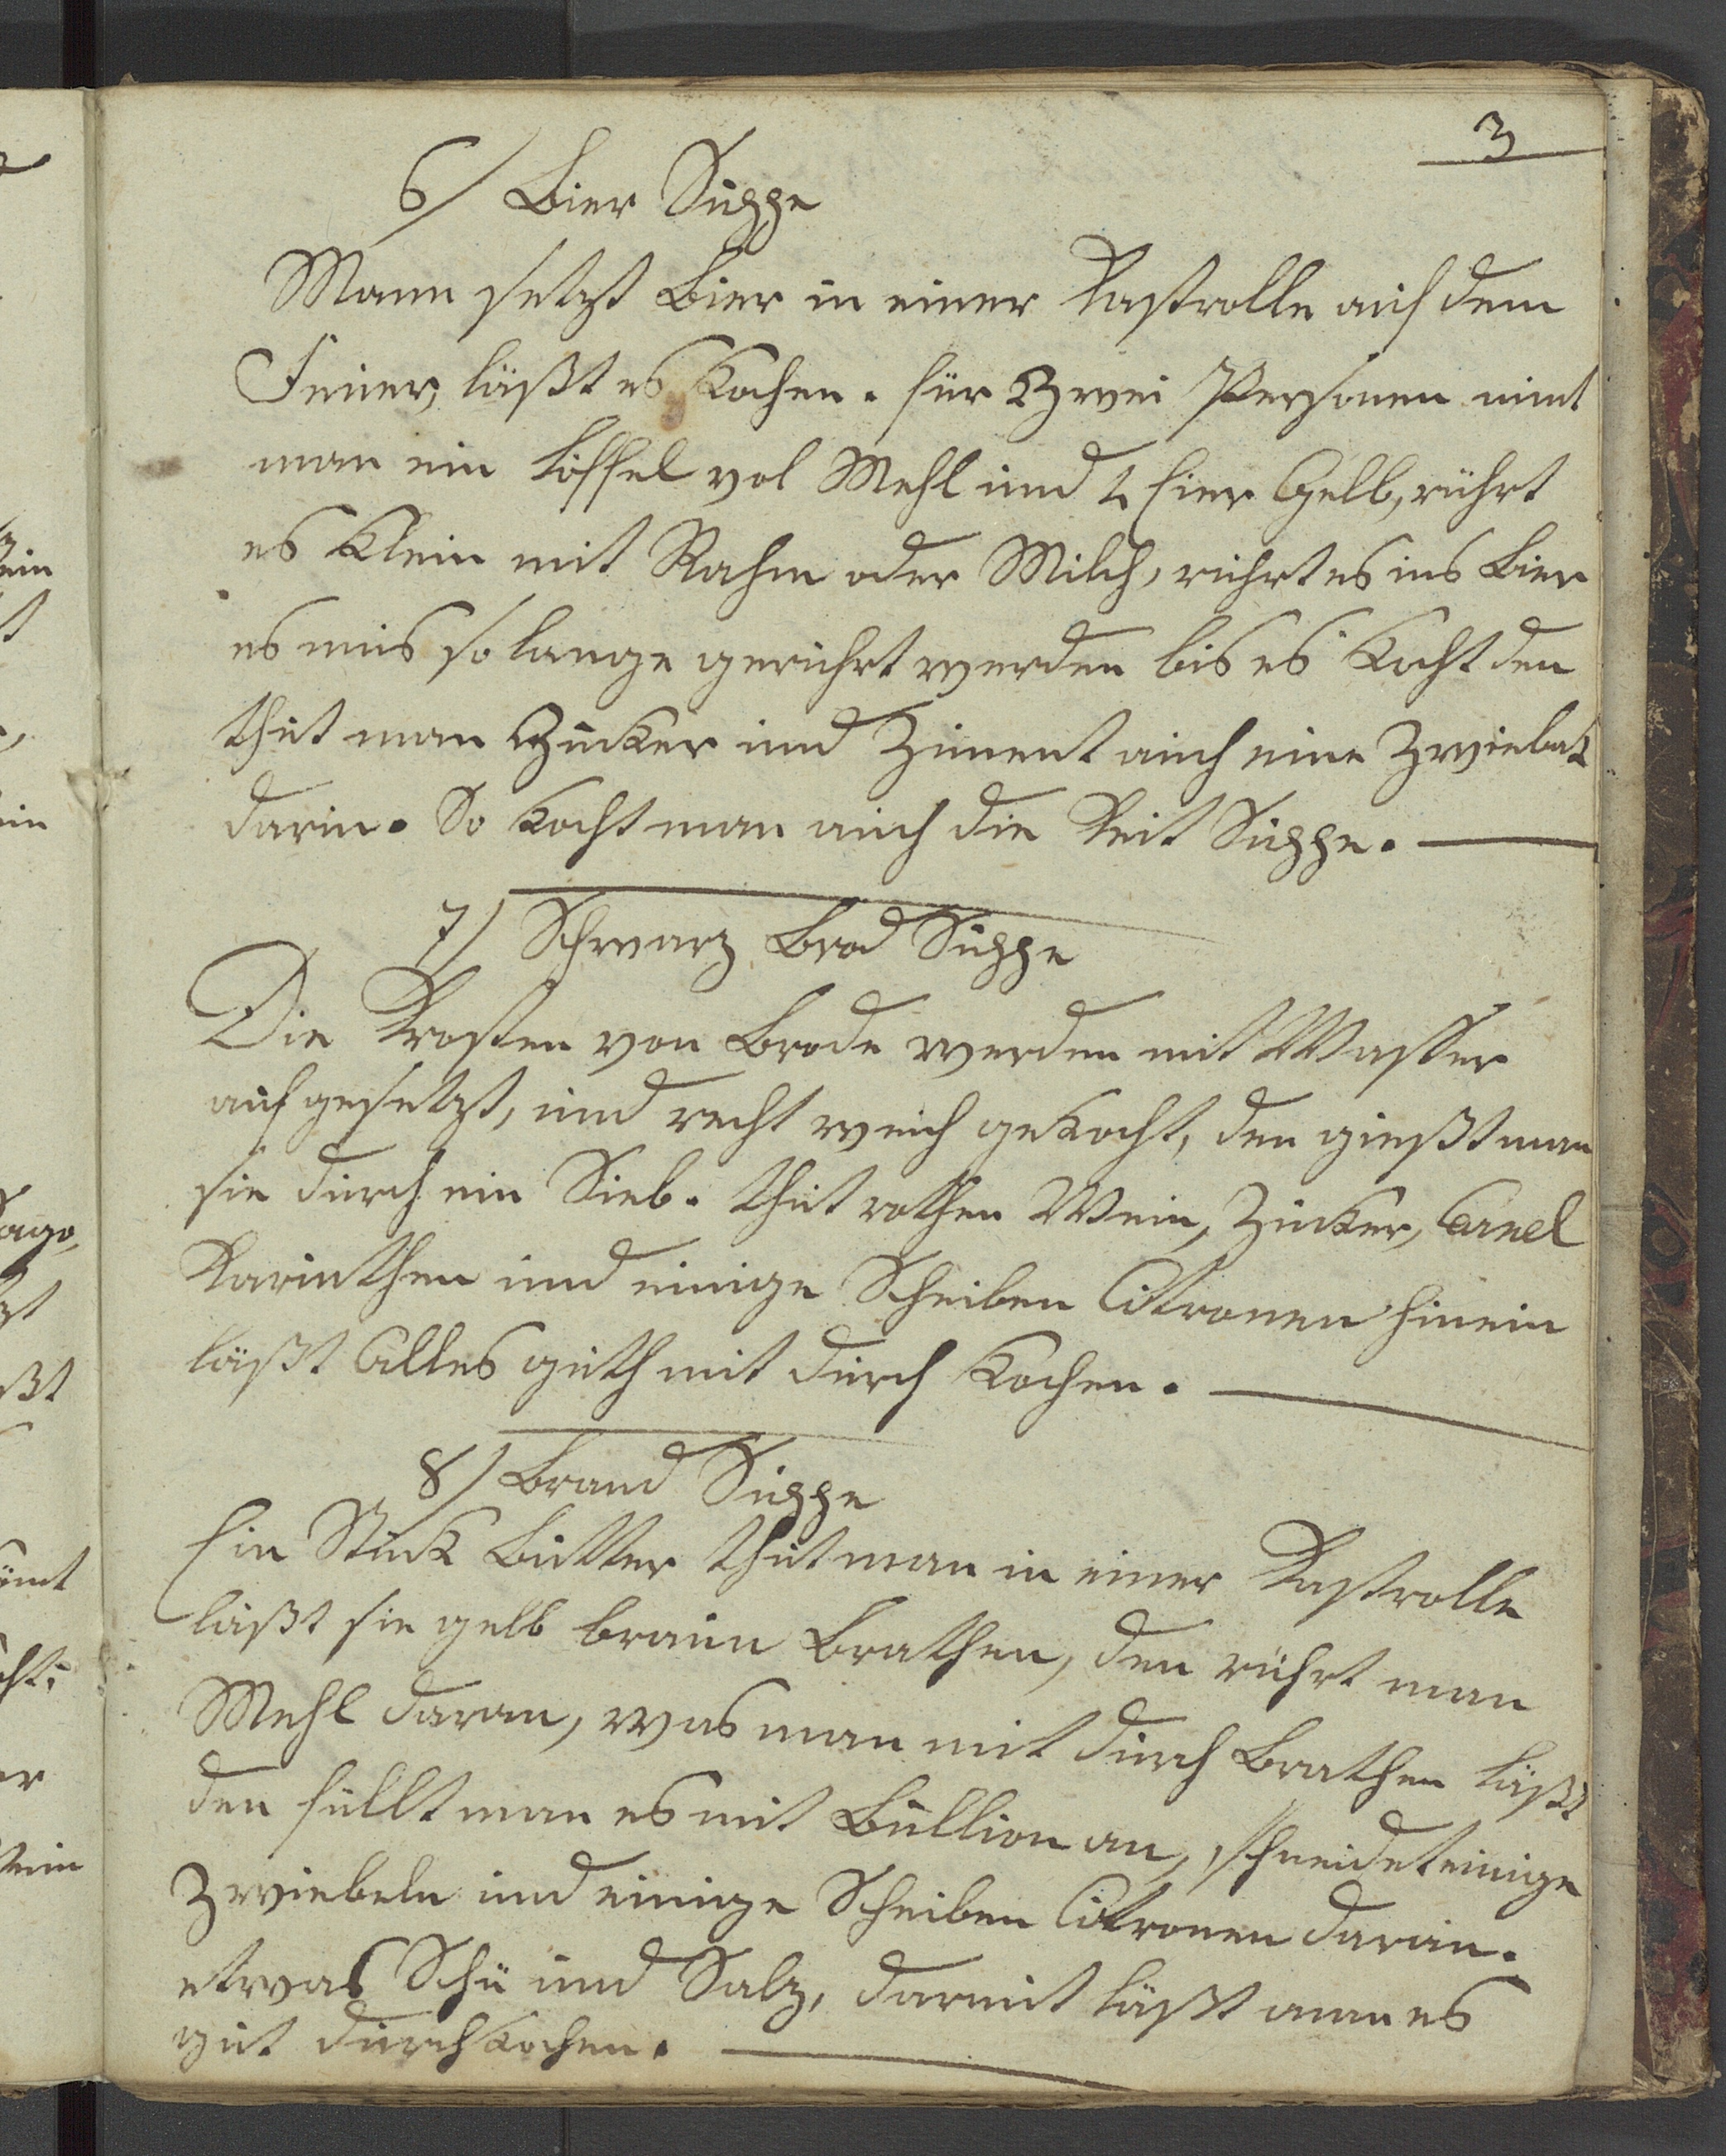 3
6/ Bier Suppe
Mann setzt Bier in einer Kastrolle auf dem
Feuer, läßt es Kochen. für Zwei Personen nimt
man ein Löffel vol Mehl und 2 Eier Gelb, rührt
es Klein mit Rahm oder Milch, rührt es ins Bier
es mus so lange gerührt werden bis es Kocht den
thut man Zucker und Ziment auch eine Zwiebak
darin. So Kocht man auch die Suppe.
7/ Schwarz Brod Suppe
Die Krosten von Brode werden mit Wasser
auf gesetzt, und recht weich gekocht, den gießt man
sie durch ein Sieb. thut rothen Wein, Zucker, Canel
Karinthen und einige Scheiben Citronen hinein
läßt Alles guth mit durch Kochen.
8/ Brand Suppe
Ein Stück Butter thut man in einer Kastrolle
läßt sie gelb braun Brathen, den rührt man
Mehl daran, was man mit durch Brathen läßt
den füllt man es mit Bullion an, schneidet einige
Zwiebeln und einige Scheiben Citronen darin.
etwas Schü und Salz, darmit läßt man es
gut durchkochen.